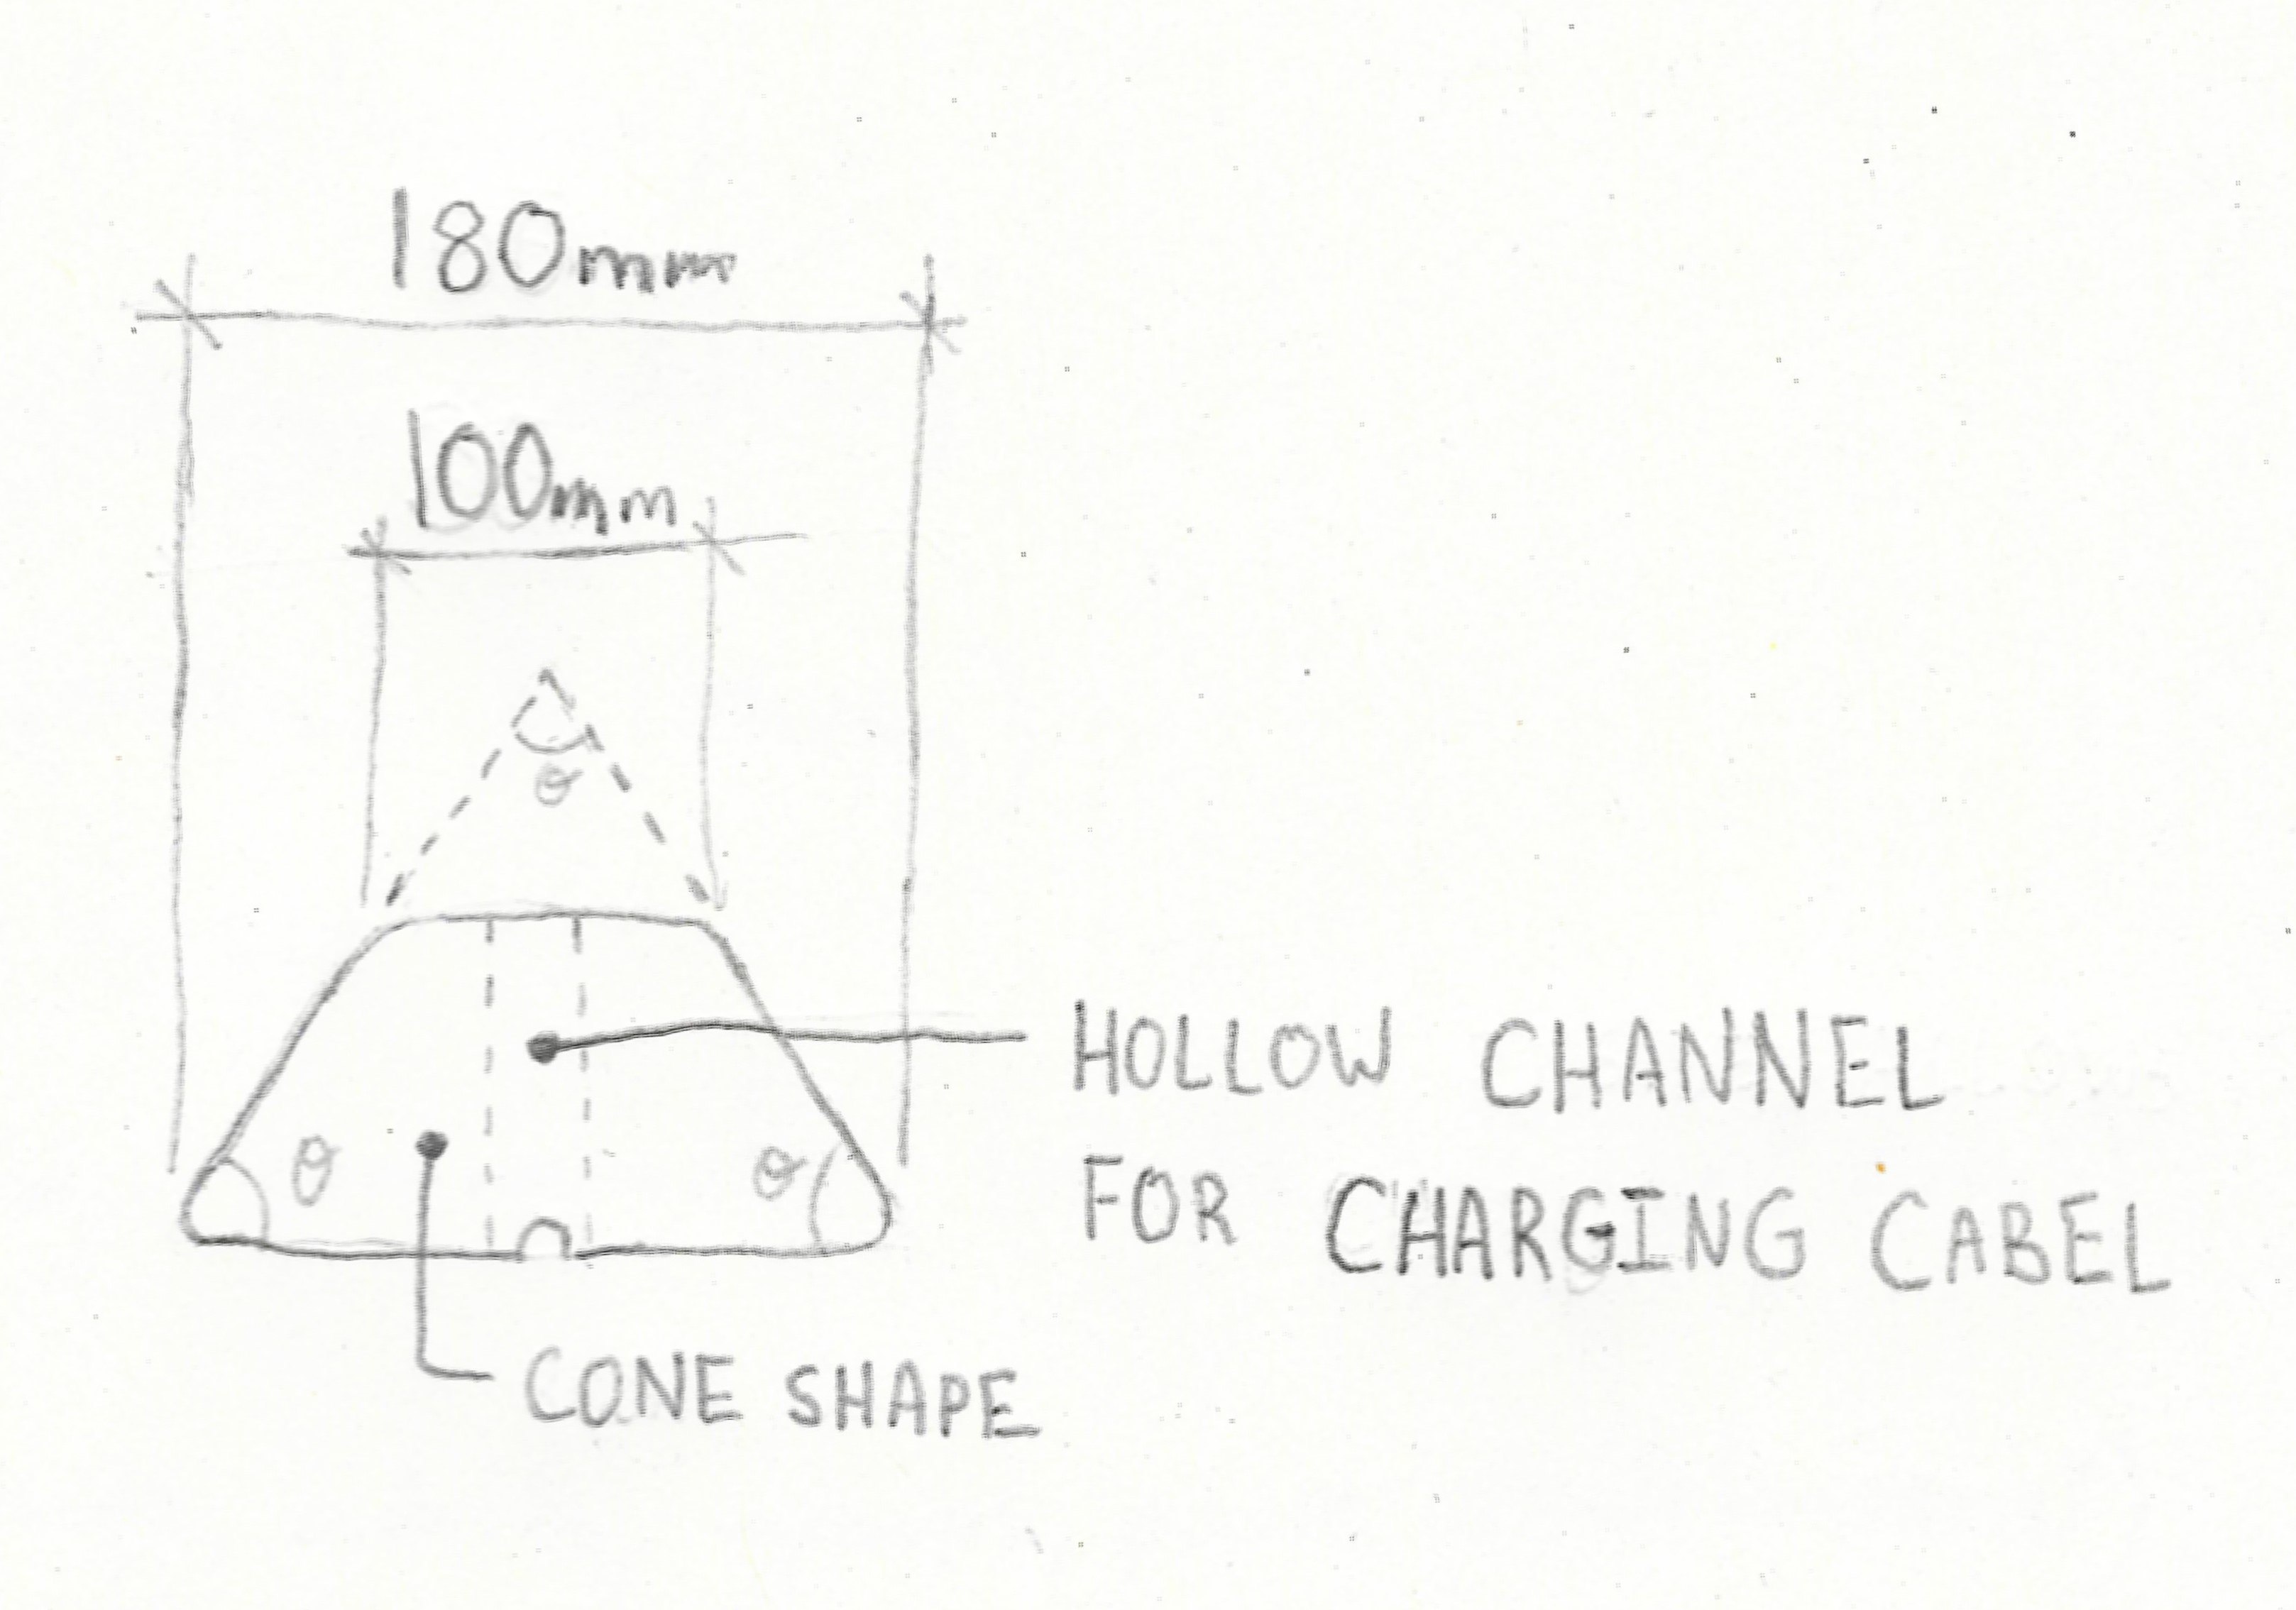 180mm
100mm
θ
HOLLOW CHANNEL
θ
θ
FOR CHARGING CABEL
CONE SHAPE